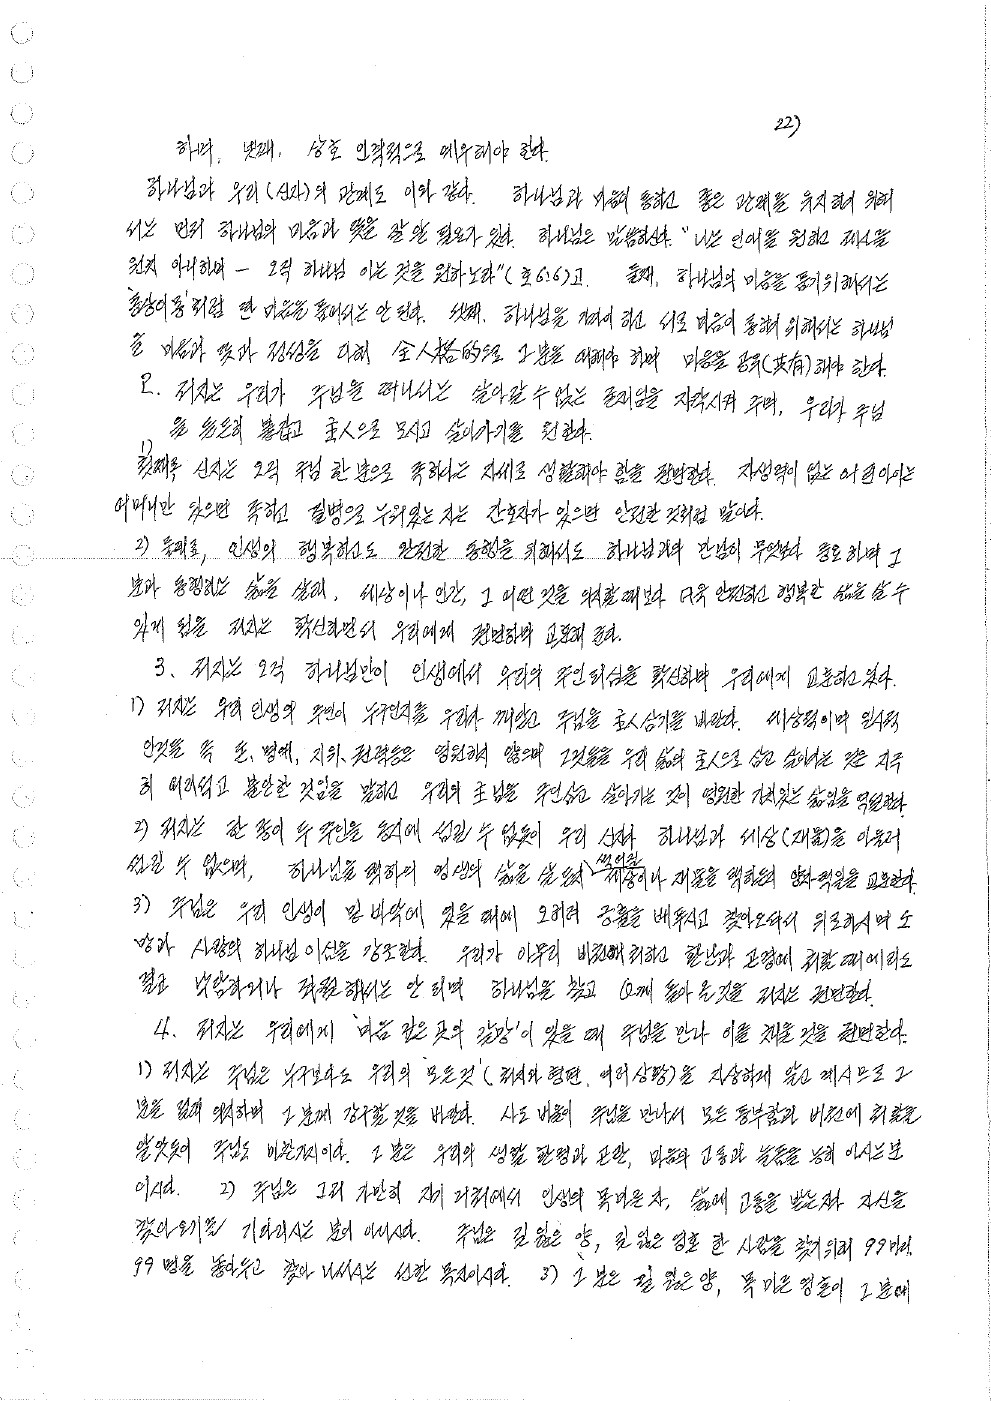 22)
하며, 넷째, 상호 인격적으로 예우해야 한다.
하나님과 우리(신자)의 관계도 이와 같다. 하나님과 마음이 통하고 좋은 관계를 유지하기 위해
서는 먼저 하나님의 마음과 뜻을 잘 알 필요가 있다. 하나님은 말씀하신다. "나는 인애를 원하고 제사를
원치 아니하며 - 오직 하나님 아는 것을 원하노라"(호6:6)고. 둘째, 하나님의 마음을 품기 위해서는
처럼 딴 마음을 품어서는 안 된다. 셋째, 하나님을 하고 서로 마음이 통하기 위해서는 하나님
을 마음과 뜻과 정성을 다해 全人格的으로 그분을 대해야 하며 마음을 공유(共有)해야 한다.
2. 저자는 우리가 주님을 떠나서는 살아갈 수 없는 존재임을 자각시켜 주며, 우리가 주님
을 붙잡고 主人으로 모시고 살아가기를 원한다.
1) 첫째로 신자는 오직 주님 한 분으로 족하다는 자세로 생활해야 함을 권면한다. 자생력이 없는 어린아이는
어머니만 있으면 족하고 질병으로 누워있는 자는 간호자가 있으면 안전한 것처럼 말이다.
2) 둘째로, 인생의 행복하고도 안전한 동행을 위해서도 하나님과의 만남이 무엇보다 중요하며 그
분과 동행하는 삶을 살 때, 세상이나 인간, 그 어떤 것을 의지할 때보다 더욱 안전하고 행복한 삶을 살 수
있게 됨을 저자는 확신하면서 우리에게 권면하며 교훈해 준다.
3. 저자는 오직 하나님만이 인생에서 우리의 주인되심을 확신하며 우리에게 교훈하고 있다.
1) 저자는 우리 인생의 주인이 누구인지를 우리가 깨닫고 주님을 主人 삼기를 바란다. 세상적이며 일시적
인것들 즉 돈, 명예, 지위, 권력등은 영원하지 않으며 그것들을 우리 삶의 主人으로 삼고 살아가는 것은 지극
히 어리석고 불안한 것임을 말하고 우리의 主님을 주인삼고 살아가는 것이 영원한 가치있는 삶임을 역설한다.
2) 저자는 한 종이 두 주인을 동시에 섬길 수 없듯이 우리 신자가 하나님과 세상(재물)을 아울러
섬길 수 없으며, 하나님을 택하여 영생의 삶을 살든지 썩어질 세상이나 재물을 택하든지 양자택일을 교훈한다.
3) 주님은 우리 인생이 밑바닥에 있을 때에 오히려 긍휼을 베푸시고 찾아오셔서 위로하시며 소
망과 사랑의 하나님이심을 강조한다. 우리가 아무리 비천에 처하고 환난과 곤경에 처할 때에라도
결코 낙망하거나 해서는 안 되며 하나님을 찾고 께 돌아올 것을 저자는 권면한다.
4. 저자는 우리에게 '마음 깊은 곳의 갈망'이 있을 때 주님을 만나 이를 채울 것을 권면한다.
1) 저자는 주님은 누구보다도 우리의 '모든것'(처지와 형편, 여러 상황)을 자상하게 알고 계시므로 그
분을 의지하며 그 분께 간구할 것을 바란다. 사도 바울이 주님을 만나서 모든 풍부함과 비천에 처함을
알았듯이 주님도 마찬가지이다. 그 분은 우리의 생활 환경과 곤란, 마음의 고통과 슬픔을 능히 아시는 분
이시다. 2) 주님은 그저 가만히 자기 처소에서 인생의 목마른 자, 삶에 고통을 받는 자가 자신을
찾아오기를 기다리시는 분이 아니시다. 주님은 길 잃은 양, 길 잃은 영혼 한 사람을 찾기 위해 99마리,
99명을 놓아두고 찾아 나서시는 선한 목자이시다. 3) 그 분은 길 잃은 양, 목마른 영혼이 그 분께